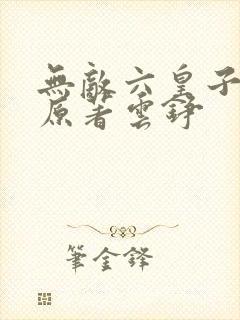 無敵六皇子
原著雲錚
筆金鋒